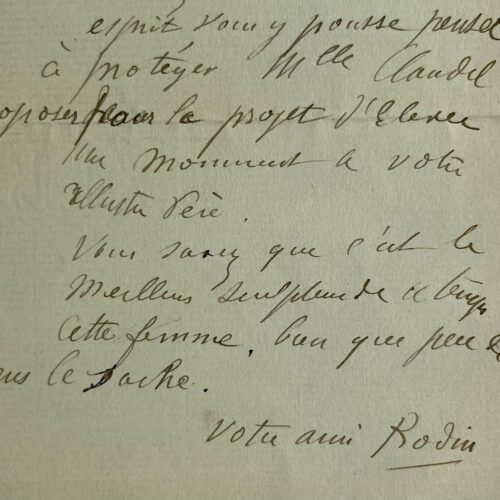 esprit vous y pousse pensez
à protéger Mlle Claudel
pour le projet d'Elever
un monument a votre
illustre Père.
Vous savez que c'est le
meilleur sculpteur de ce temps
cette femme, bien que peu de
gens le sache.
Votre ami Rodin